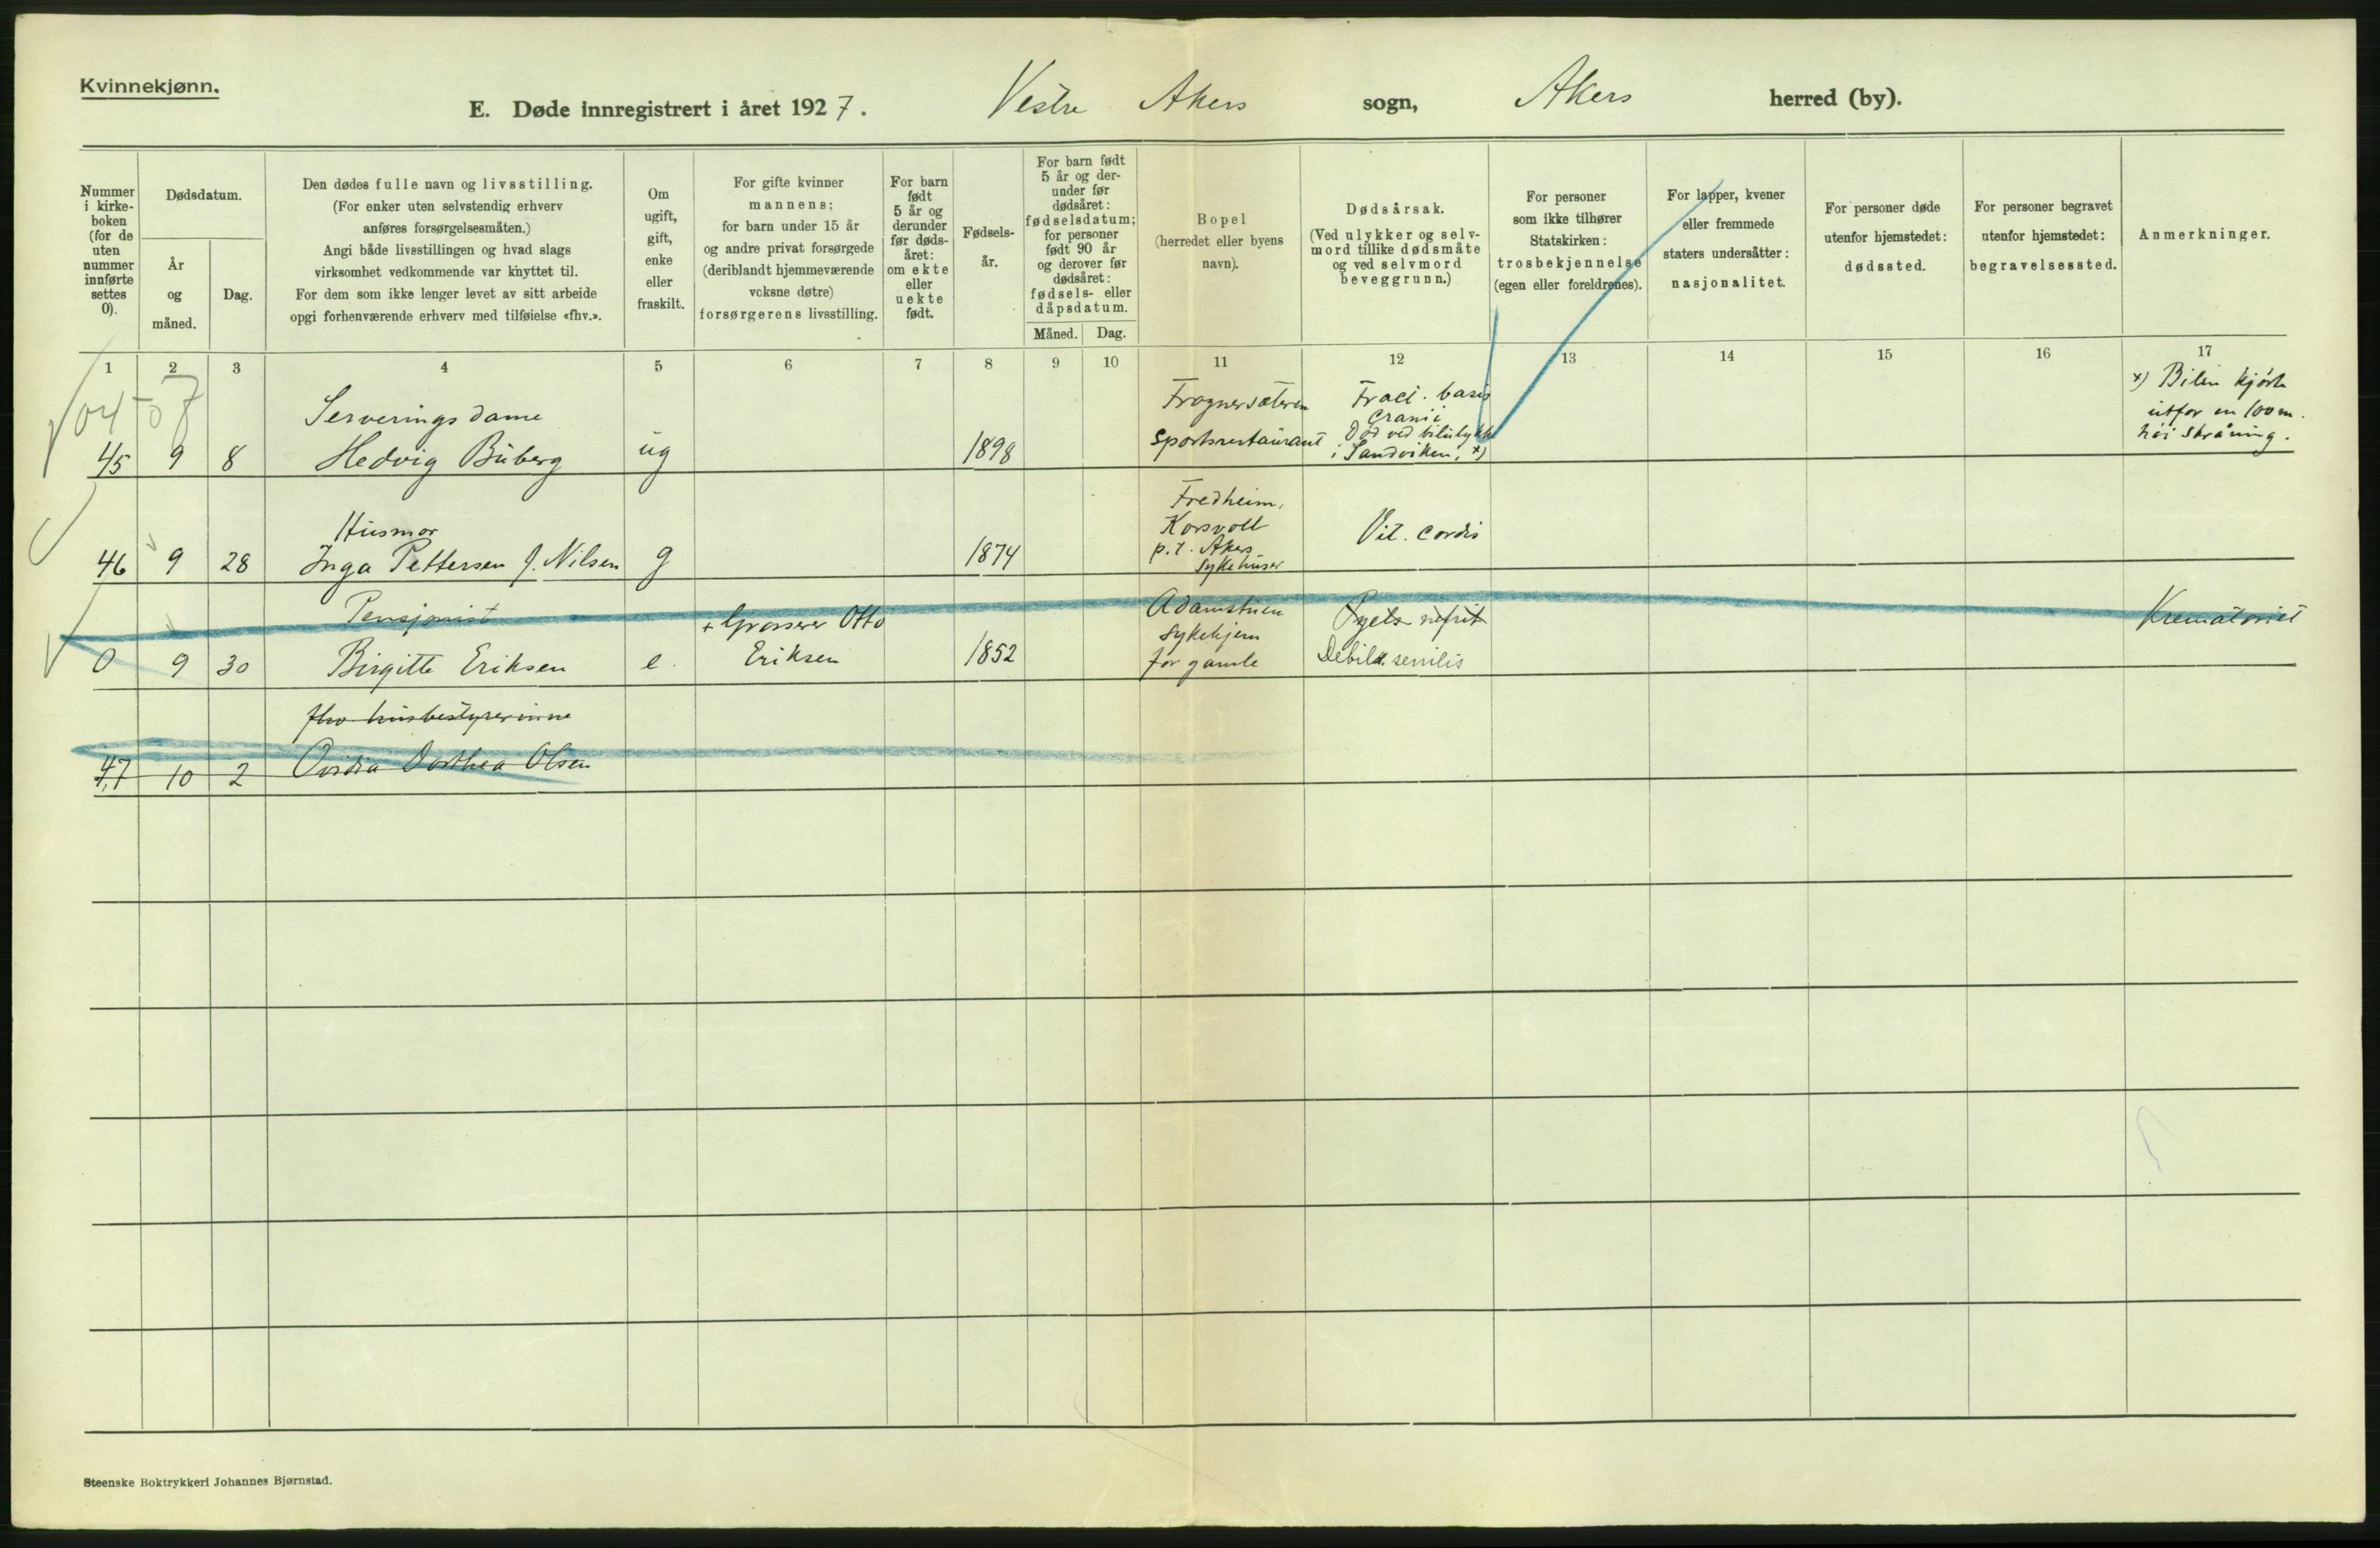 Kvinnekjønn.
E. Døde innregistrert i året 1927. Vestre Akers sogn, Akers herred (by).
Nummer
i kirke-
boken
(for de
uten
nummer
innførte
settes
0).
Dødsdatum.
År
og
måned.
Dag.
Den dødes fulle navn og livsstilling.
(For enker uten selvstendig erhverv
anføres forsørgelsesmåten.)
Angi både livsstillingen og hvad slags
virksomhet vedkommende var knyttet til.
For dem som ikke lenger levet av sitt arbeide
opgi forhenværende erhverv med tilføielse «fhv.».
Om
ugift,
gift,
enke
eller
fraskilt.
For gifte kvinner
mannens;
for barn under 15 år
og andre privat forsørgede
(deriblandt hjemmeværende
voksne døtre)
forsørgerens livsstilling.
For barn
født
5 år og
derunder
før døds-
året:
om ekte
eller
uekte
født.
Fødsels-
år.
For barn født
5 år og der-
under før
dødsåret:
fødselsdatum;
for personer
født 90 år
og derover før
dødsåret:
fødsels- eller
dåpsdatum.
Måned. Dag.
Bopel
(herredet eller byens
navn).
Dødsårsak.
(Ved ulykker og selv-
mord tillike dødsmåte
og ved selvmord
beveggrunn.)
For personer
som ikke tilhører
Statskirken:
trosbekjennelse
(egen eller foreldrenes).
For lapper, kvener
eller fremmede
staters undersåtter:
nasjonalitet.
For personer døde
utenfor hjemstedet:
dødssted.
For personer begravet
utenfor hjemstedet:
begravelsessted.
Anmerkninger.
1 2 3 4 5 6 7 8 9 10 11 12 13 14 15 16 17
04-07
45 9 8
Serveringsdame
Hedvig Buberg
ug
1898
Frognersæteren
sportsrestaurant
Fract. basis
Cranii
Død ved bilulykke
i Sandviken. x)
x) Bilen kjørte
utfor en 100 m.
høi skråning.
46 9 28
Husmor
Inga Pettersen f. Nilsen
g
1874
Fredheim,
Korsvoll
p.t. Akers
sykehuser
Vit. cordis
0 9 30
Pensjonist
Birgitte Eriksen
e.
+ Grosserer Otto
Eriksen
1852
Adamstuen
sykehjem
for gamle
Pyelo nefrit
Debilit. senilis
Krematoriet
47 10 2
fhv husbestyrerinne
Ovidia Dorthea Olsen
Steenske Boktrykkeri Johannes Bjørnstad.